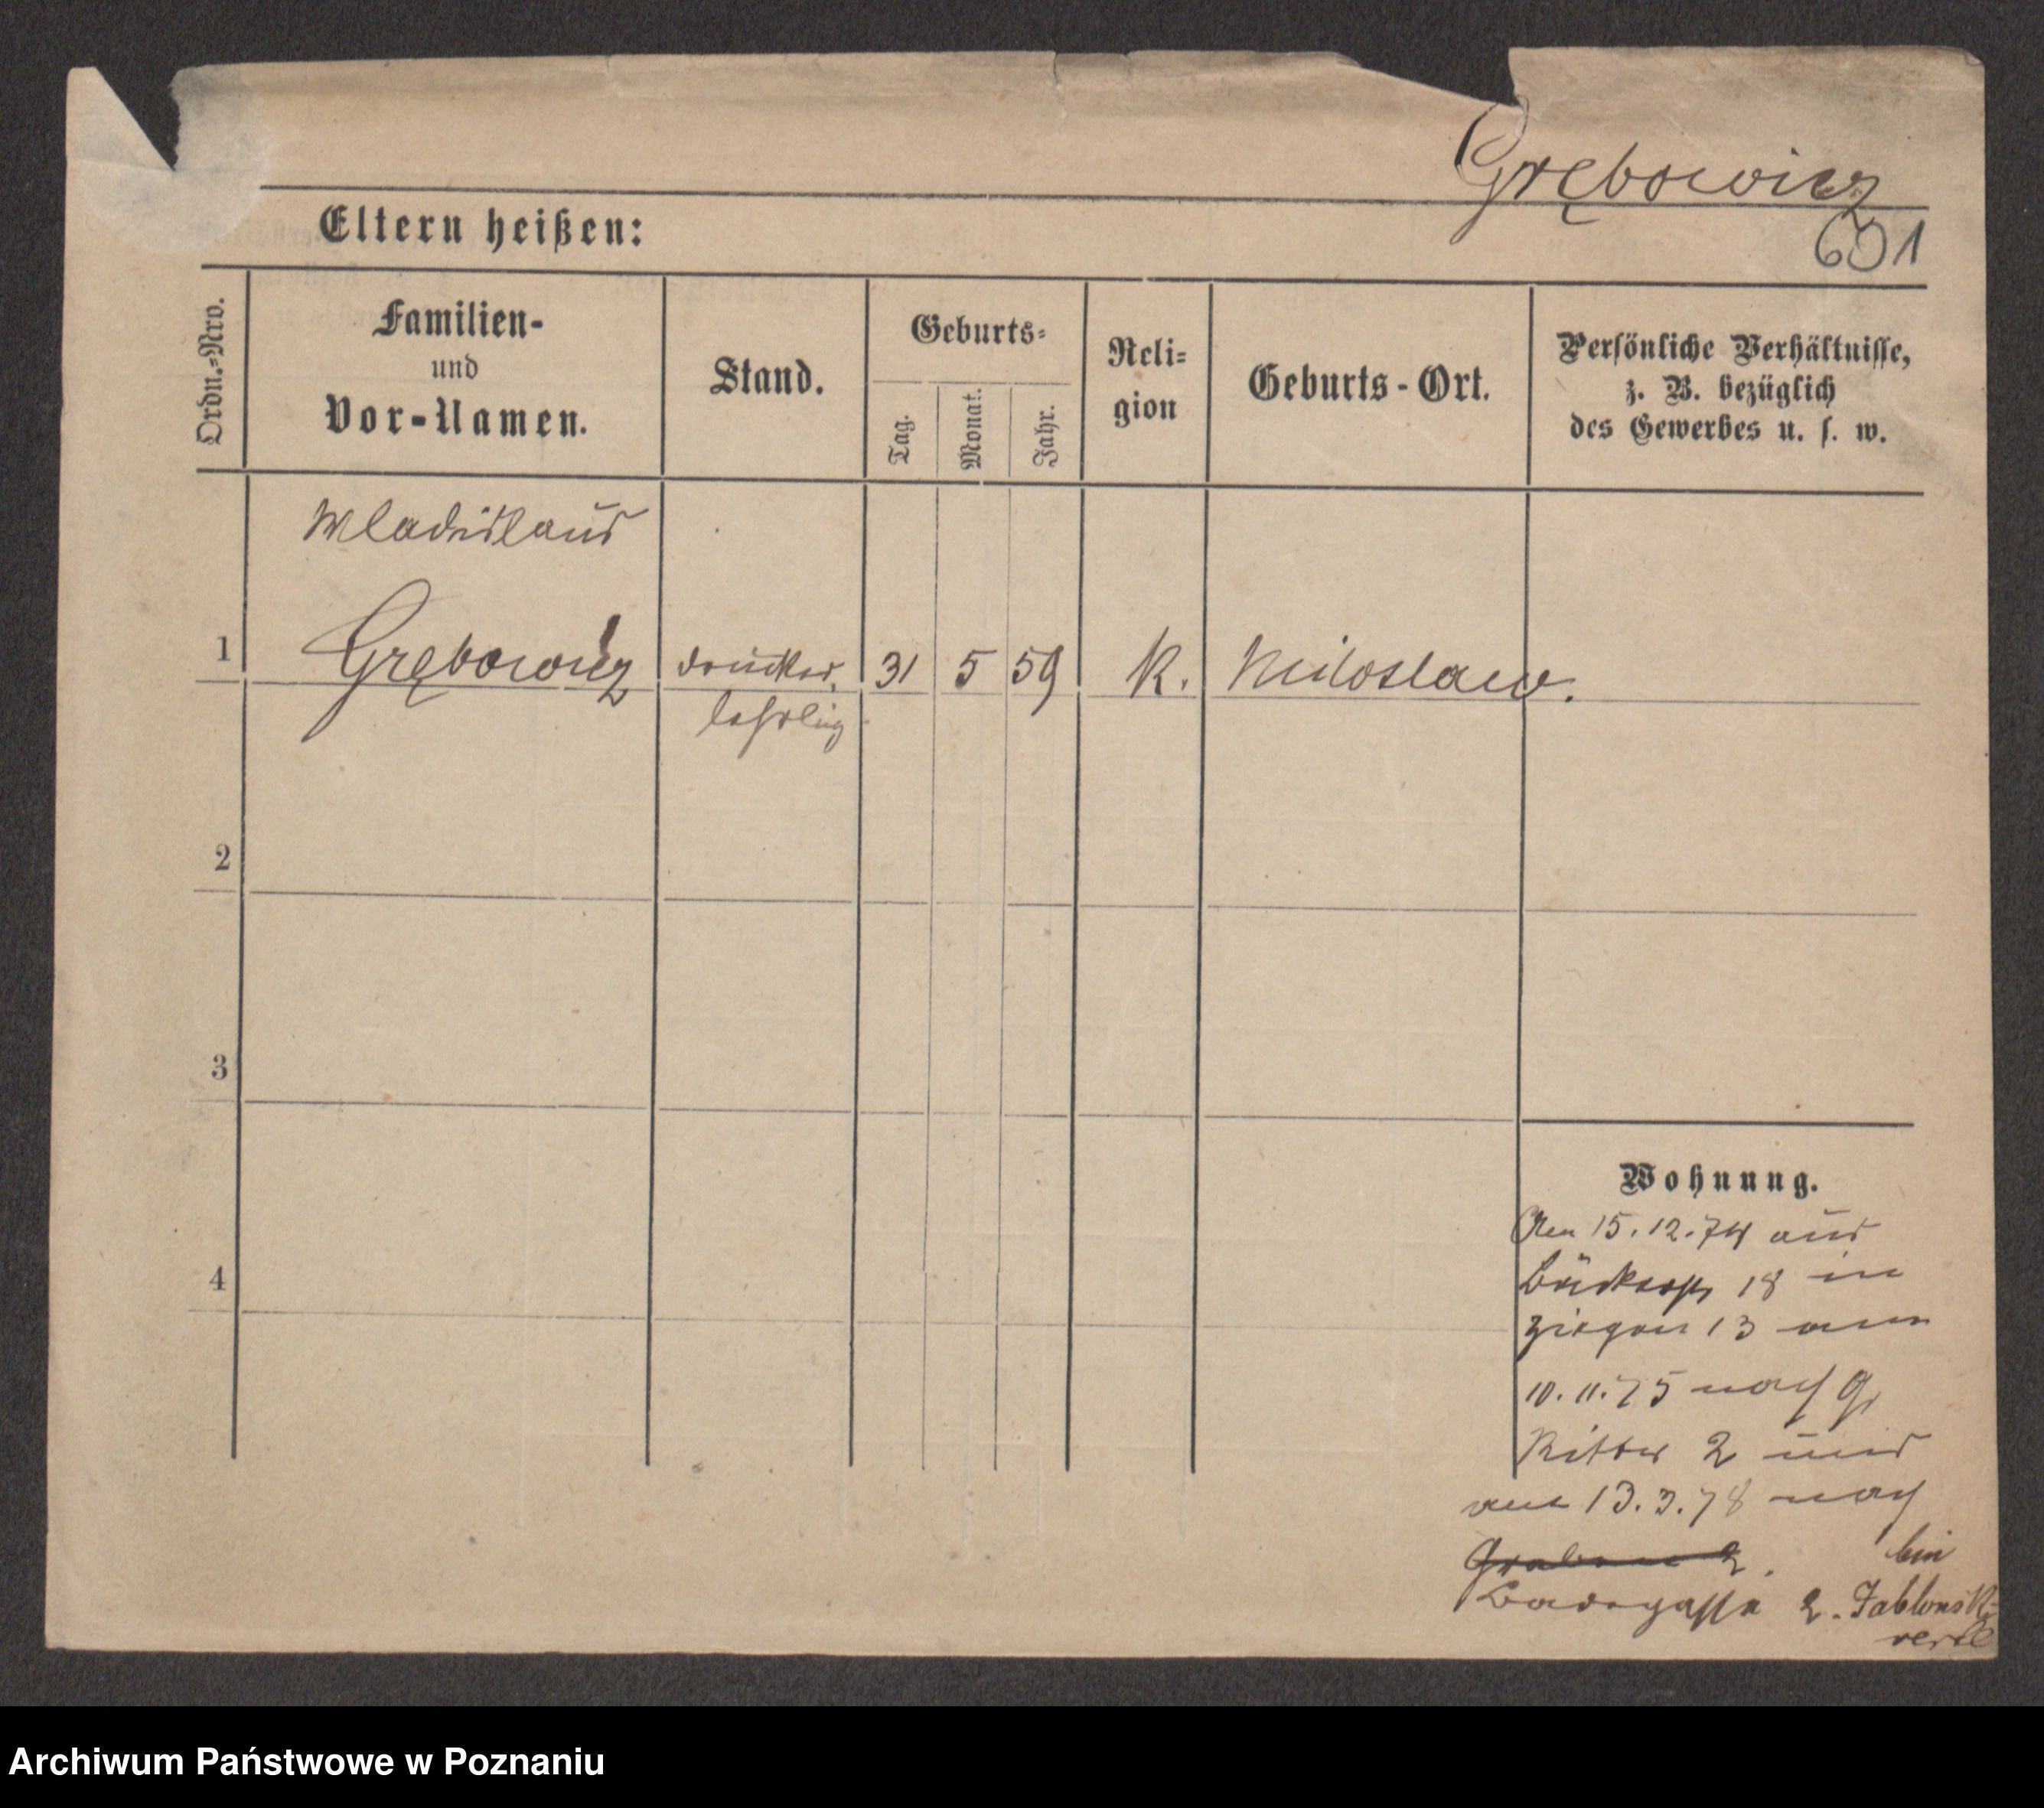 Grębowicz
601
Eltern heißen:
Ordn.-Nro.
Familien-
und
Vor-Namen.
Stand.
Geburts-
Tag.
Monat.
Jahr.
Reli-
gion
Geburts-Ort.
Persönliche Verhältnisse,
z. B. bezüglich
des Gewerbes u. s. w.
Wladislaus
1 Grębowicz Drucker 31 5 59 K. Miloslaw.
lehrling
2
3
4
Wohnung.
15.12.74 aus
18 in
Ziegen 13 am
10.11.75 nach Gr
Ritter 2 und
am 13.3.78 nach
Graben 2. bei
Badegasse 2. Jablonski
Archiwum Państwowe w Poznaniu